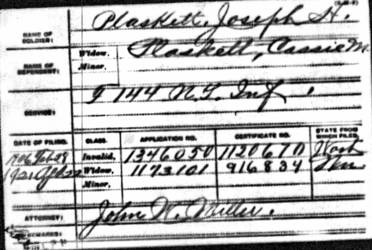 NAME OF SOLDIER: Plaskett, Joseph H.
NAME OF DEPENDENT: Widow, Plaskett, Cassie M.
Minor.
SERVICE: F 144 N.Y. Inf.
DATE OF FILING. CLASS. APPLICATION NO. CERTIFICATE NO. STATE FROM WHICH FILED.
Invalid, 1346050 1120670 Wash
Widow, 1173101 916834
Minor.
ATTORNEY: John W. Miller.
REMARKS: